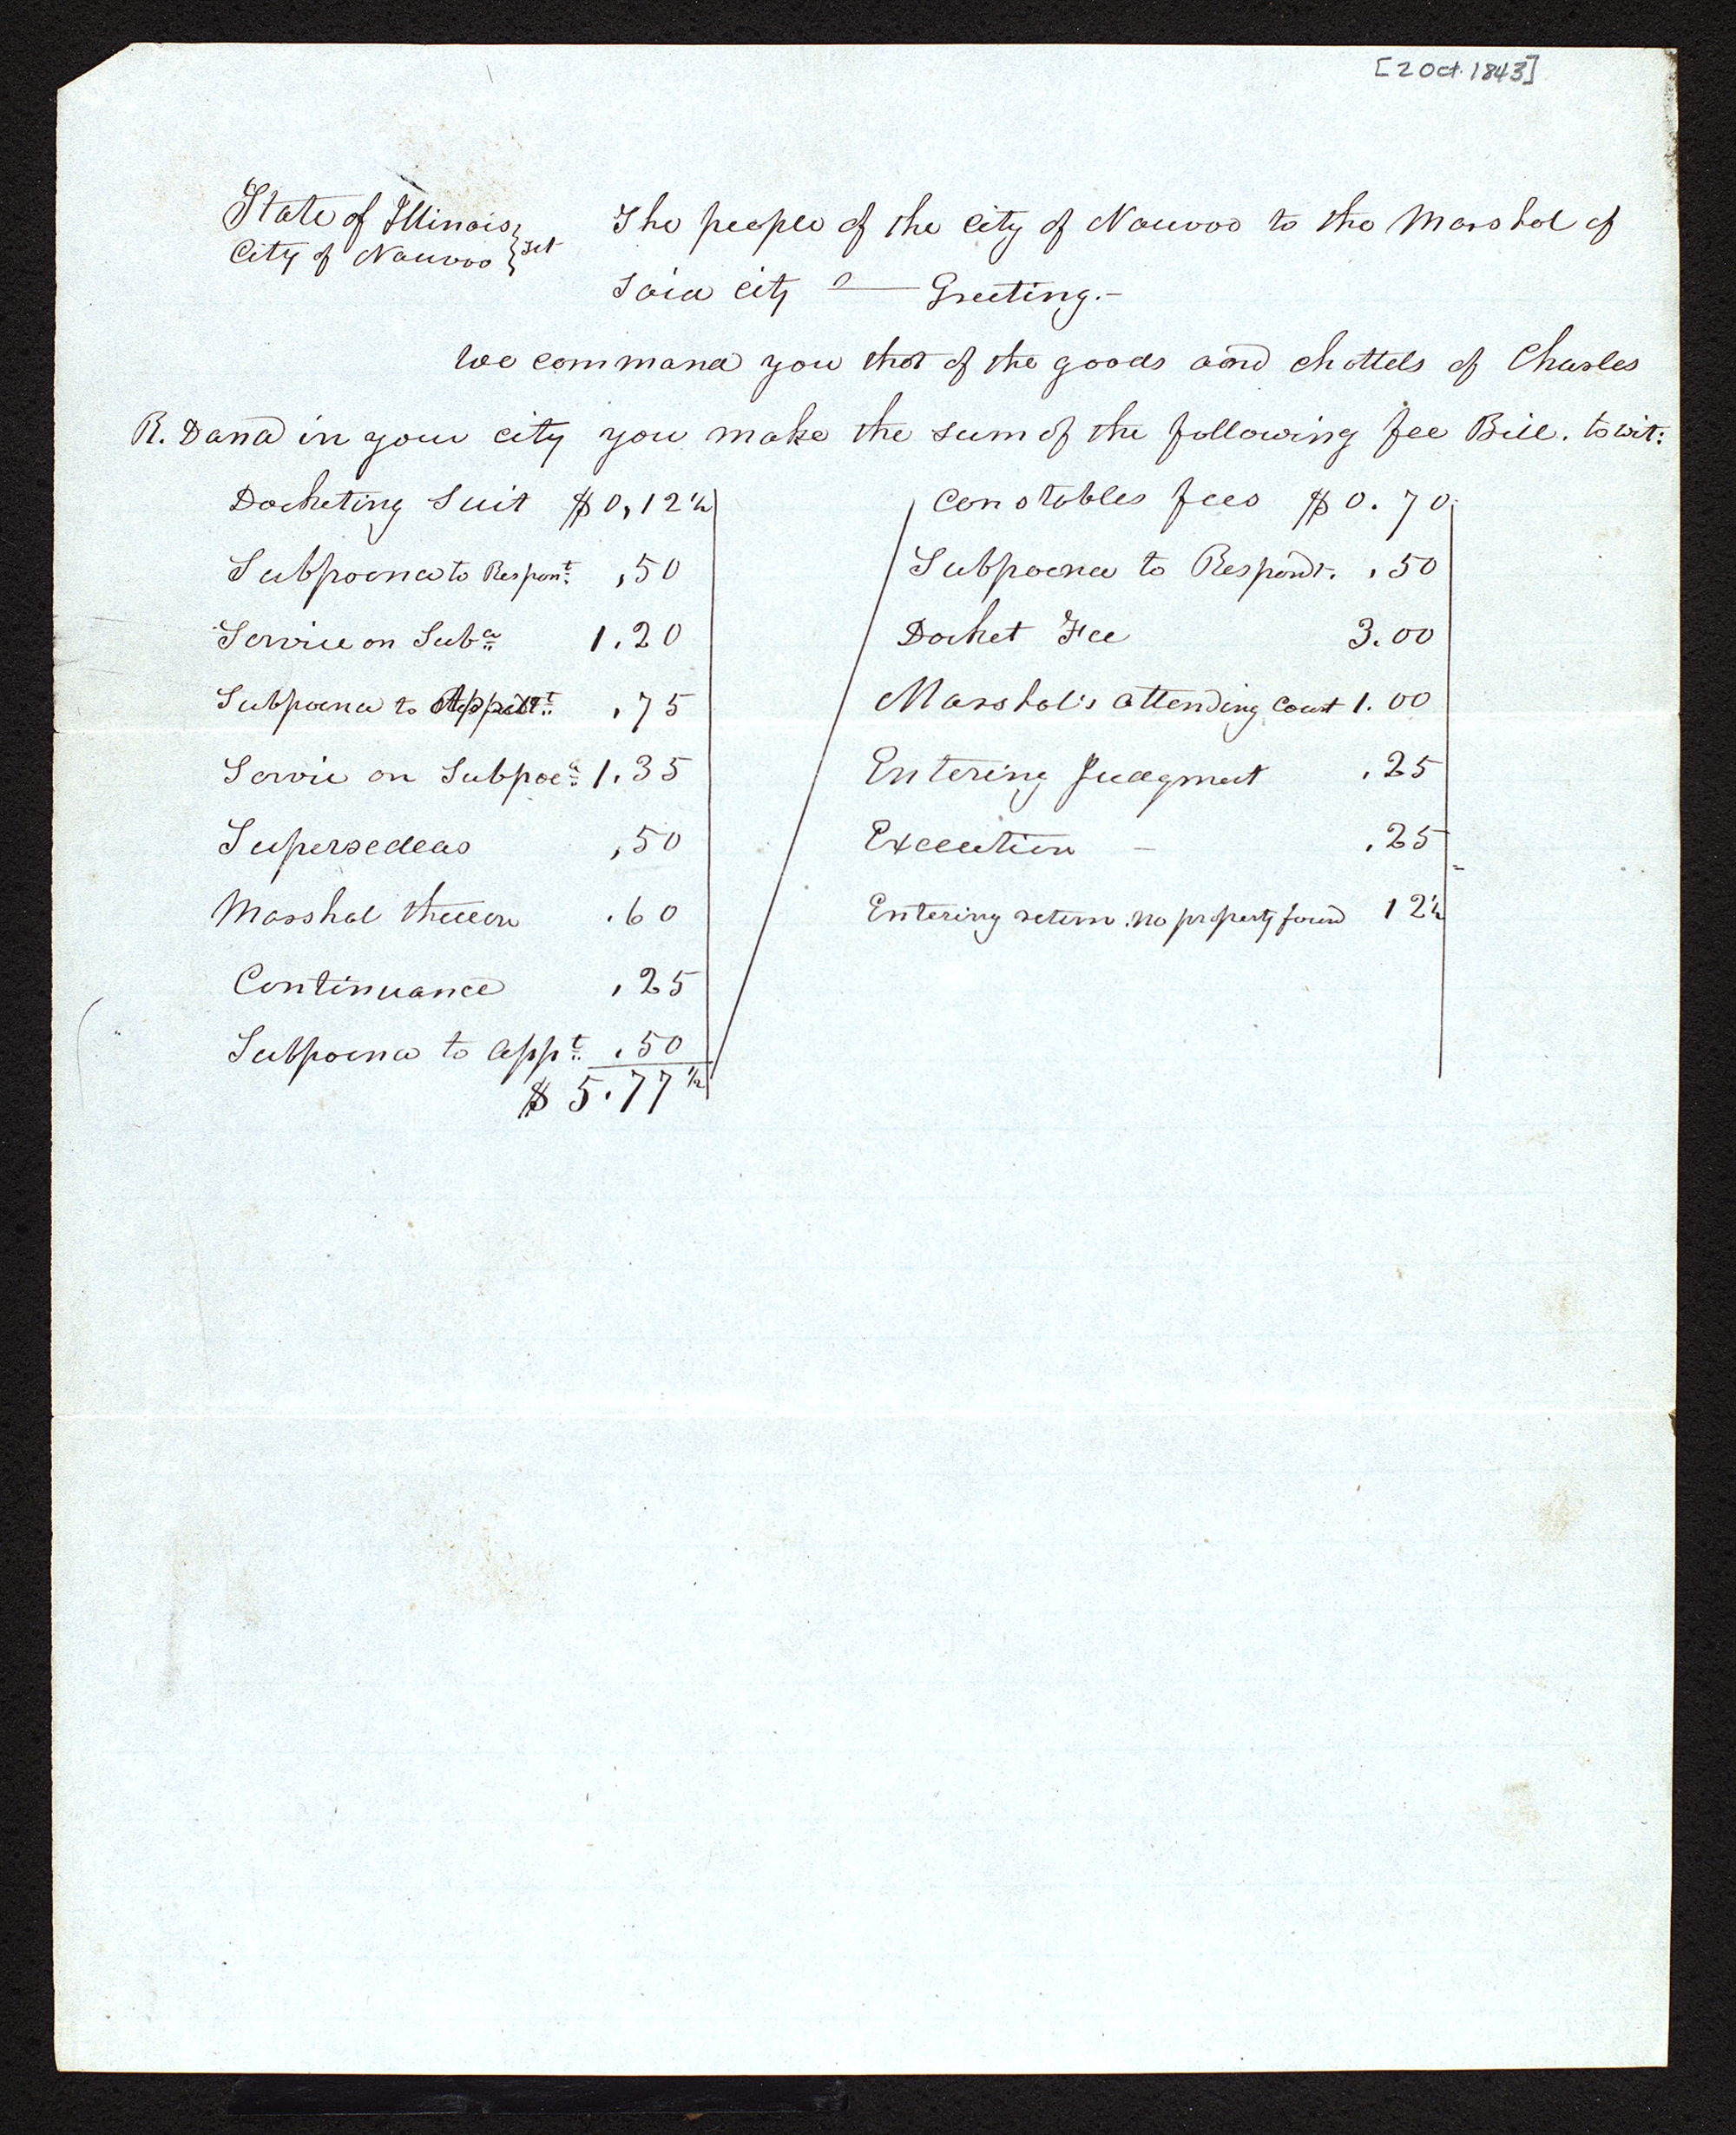 [2 Oct. 1843]
State of Illinois,
City of Nauvoo } Sct
The people of the City of Nauvoo to the Marshal of
Said City Greeting.—
We command you that of the goods and chattels of Charles
R. Dana in your city you make the sum of the following fee Bill. to wit:
Docketing Suit $0,12½
Subpoena to Respont. ,50
Service on Suba 1.20
Subpoena to Appllt. .75
Servie on Subpoea 1.35
Supersedeas ,50
Marshal thereon .60
Continuance .25
Subpoena to Appt. .50
$5.77½
Constables fees $0.70
Subpoena to Respondt. .50
Docket Fee 3.00
Marshal's attending Court 1.00
Entering Judgment .25
Execution — .25
Entering return. no property found 12½